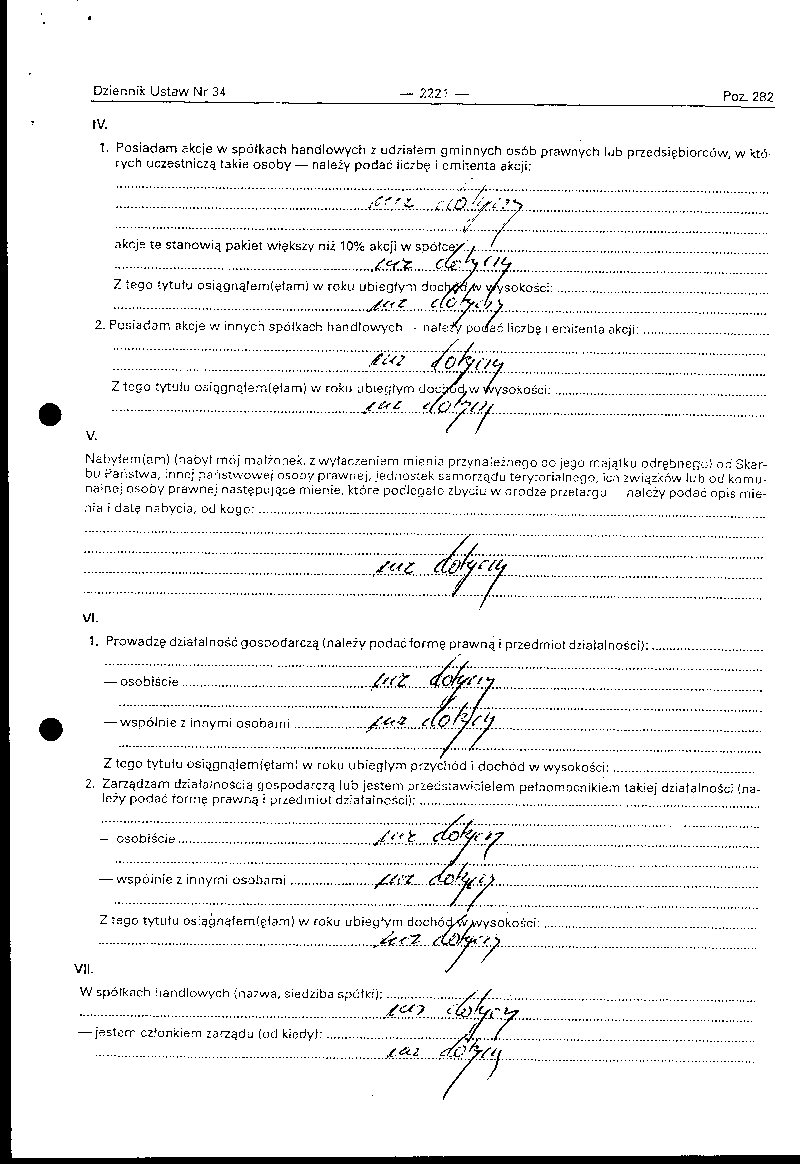 Dziennik Ustaw Nr 34 — 2221 — Poz. 282
IV.
1. Posiadam akcje w spółkach handlowych z udziałem gminnych osób prawnych lub przedsiębiorców, w któ-
rych uczestniczą takie osoby — należy podać liczbę i emitenta akcji:
nie dotyczy
akcje te stanowią pakiet większy niż 10% akcji w spółce:
nie dotyczy
Z tego tytułu osiągnąłem(ęłam) w roku ubiegłym dochód w wysokości:
nie dotyczy
2. Posiadam akcje w innych spółkach handlowych - należy podać liczbę i emitenta akcji:
nie dotyczy
Z tego tytułu osiągnąłem(ęłam) w roku ubiegłym dochód w wysokości:
nie dotyczy
V.
Nabyłem(am) (nabył mój małżonek, z wyłączeniem mienia przynależnego do jego majątku odrębnego) od Skar-
bu Państwa, innej państwowej osoby prawnej, jednostek samorządu terytorialnego, ich związków lub od komu-
nalnej osoby prawnej następujące mienie, które podlegało zbyciu w drodze przetargu — należy podać opis mie-
nia i datę nabycia, od kogo:
nie dotyczy
VI.
1. Prowadzę działalność gospodarczą (należy podać formę prawną i przedmiot działalności):
— osobiście nie dotyczy
— wspólnie z innymi osobami nie dotyczy
Z tego tytułu osiągnąłem(ęłam) w roku ubiegłym przychód i dochód w wysokości:
2. Zarządzam działalnością gospodarczą lub jestem przedstawicielem pełnomocnikiem takiej działalności (na-
leży podać formę prawną i przedmiot działalności):
— osobiście nie dotyczy
— wspólnie z innymi osobami nie dotyczy
Z tego tytułu osiągnąłem(ęłam) w roku ubiegłym dochód w wysokości:
nie dotyczy
VII.
W spółkach handlowych (nazwa, siedziba spółki):
nie dotyczy
— jestem członkiem zarządu (od kiedy):
nie dotyczy